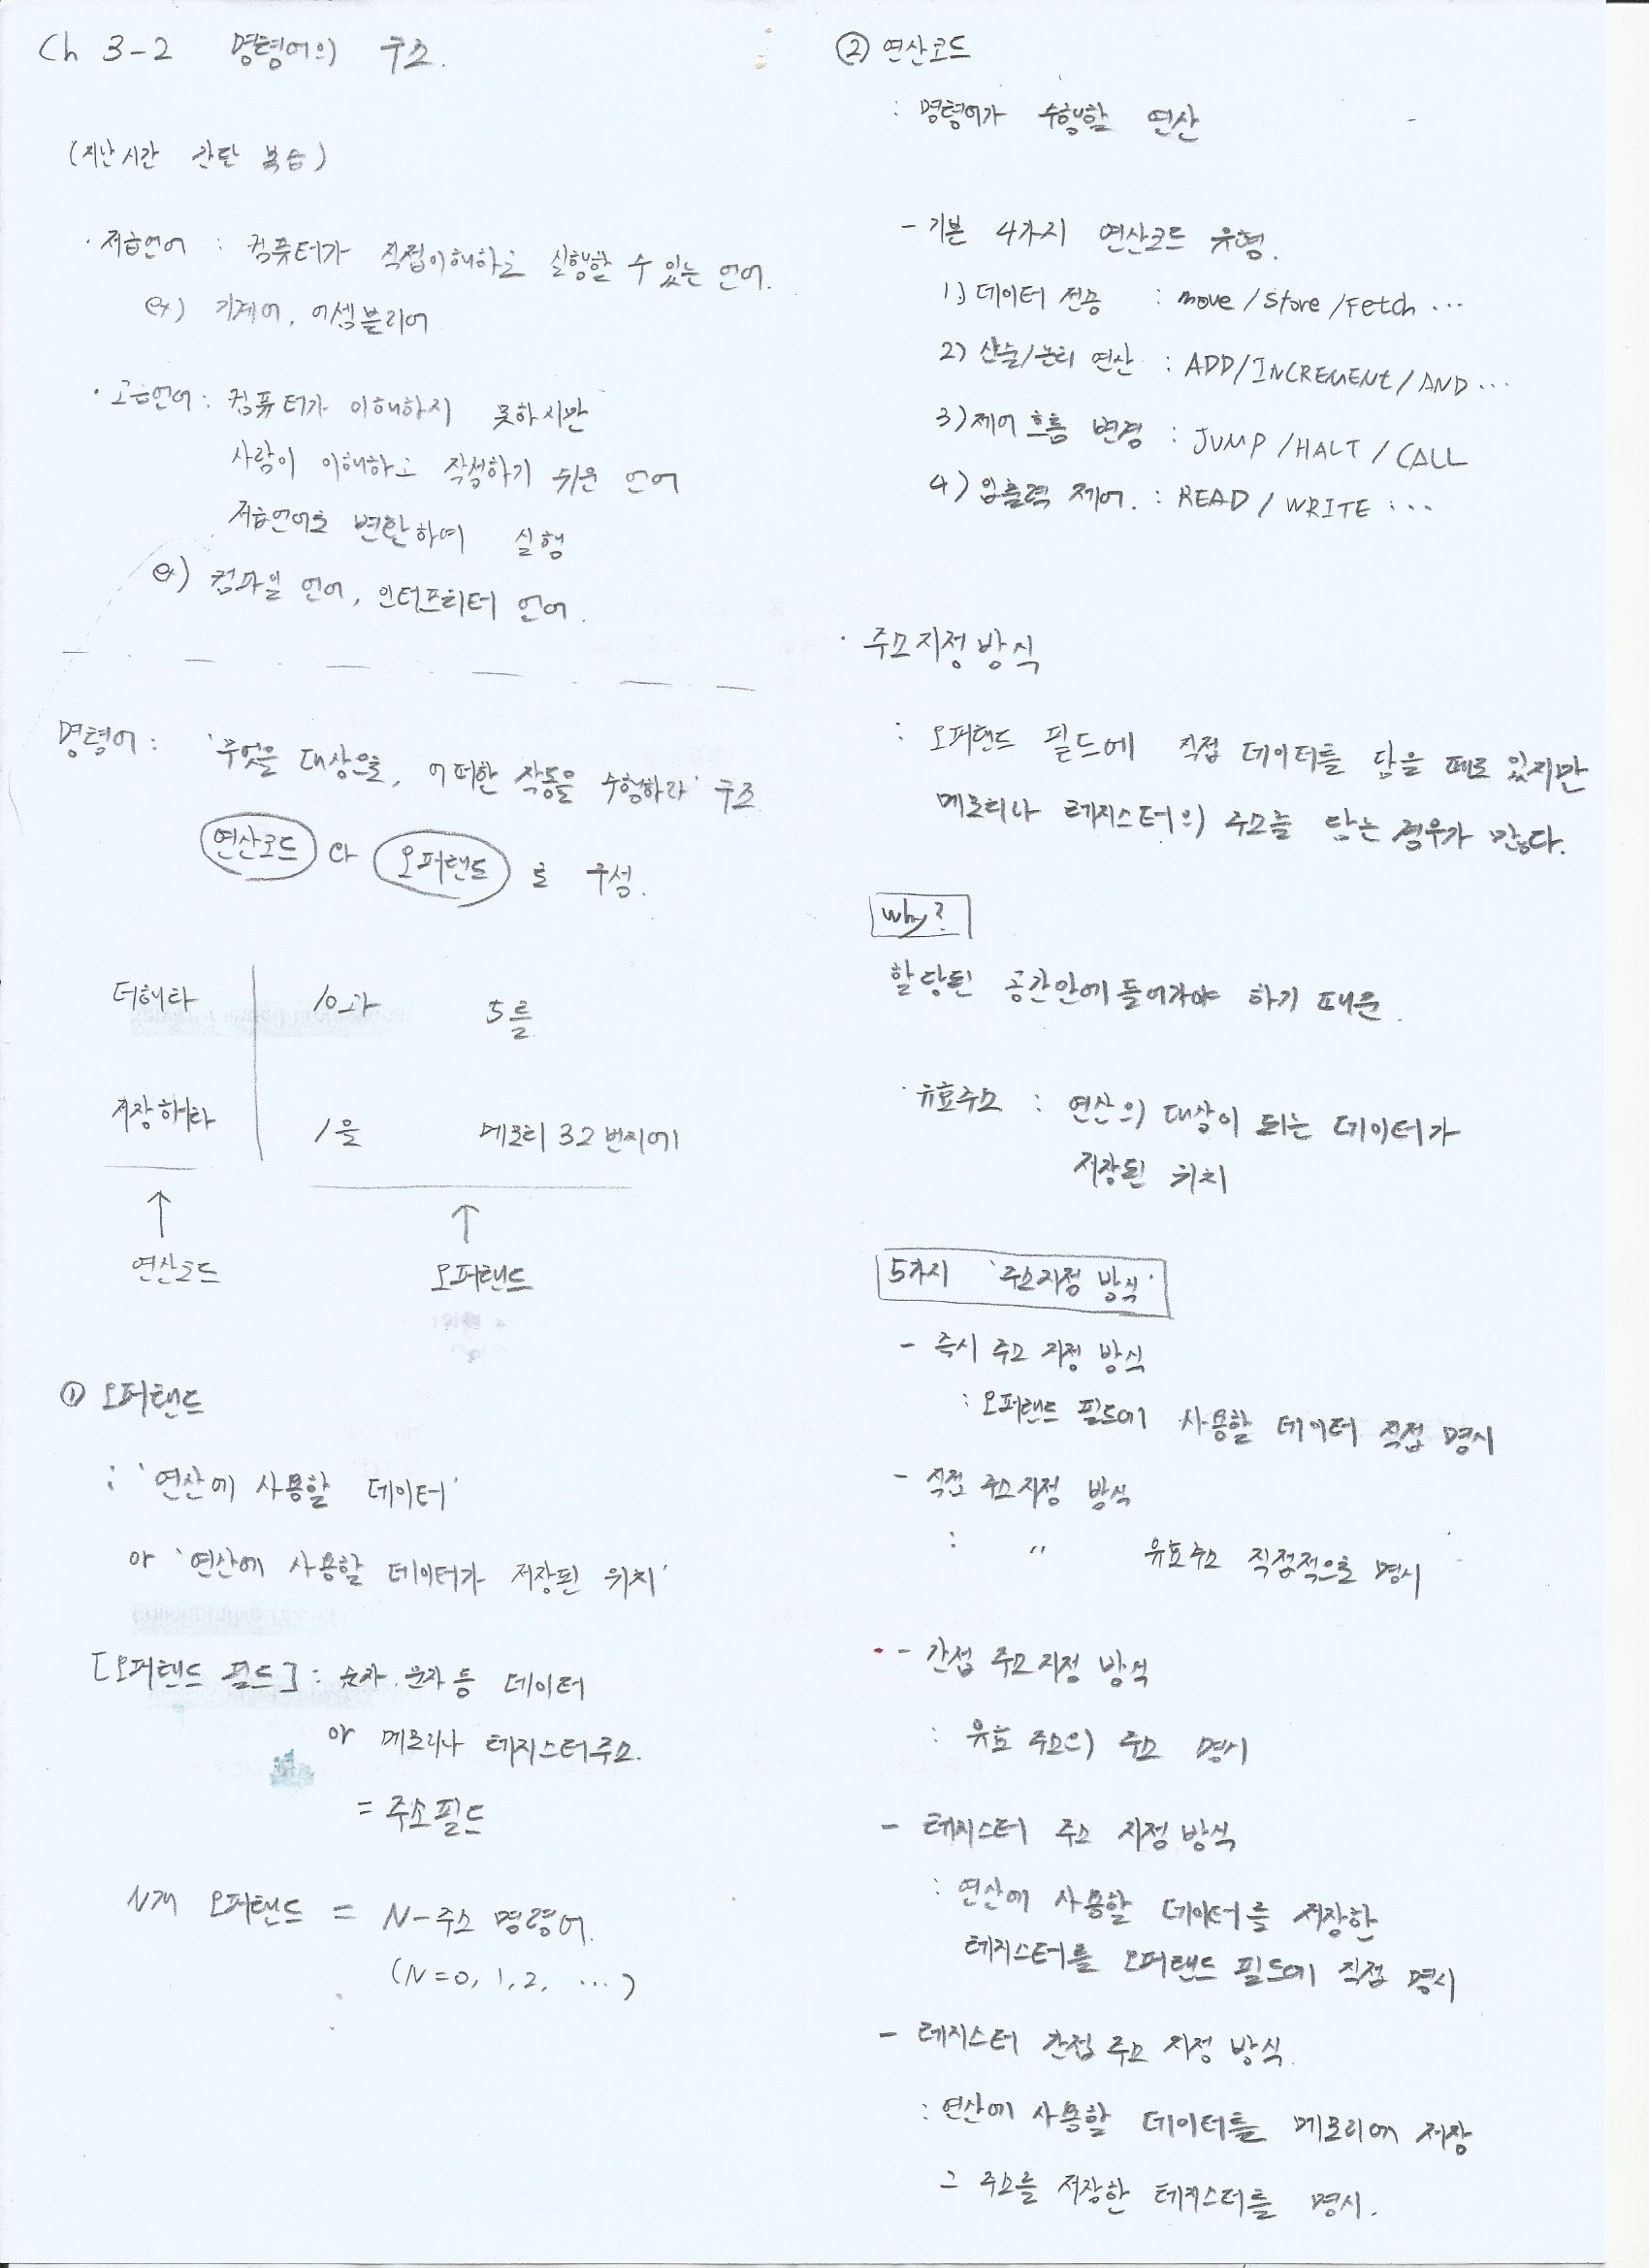 Ch 3-2 명령어의 구조.
(지난시간 간단 복습)
· 저급언어 : 컴퓨터가 직접 이해하고 실행할 수 있는 언어.
ex) 기계어, 어셈블리어
· 고급언어 : 컴퓨터가 이해하지 못하지만
사람이 이해하고 작성하기 쉬운 언어
저급언어로 변환하여 실행
ex) 컴파일 언어, 인터프리터 언어.
명령어 : '무엇을 대상으로, 어떠한 작동을 수행하라' 구조
연산코드 와 오퍼랜드 로 구성.
더해라 10과 5를
저장해라 1을 메모리 32번지에
↑ ↑
연산코드 오퍼랜드
① 오퍼랜드
: '연산에 사용할 데이터'
or '연산에 사용할 데이터가 저장된 위치'
[오퍼랜드 필드] : 숫자. 문자 등 데이터
or 메모리나 레지스터 주소.
= 주소 필드
N개 오퍼랜드 = N-주소 명령어.
(N=0, 1, 2, ...)
② 연산코드
: 명령어가 수행할 연산
- 기본 4가지 연산코드 유형.
1) 데이터 전송 : move / Store / Fetch ...
2) 산술/논리 연산 : ADD / INCREMENt / AND ...
3) 제어 흐름 변경 : JUMP / HALT / CALL
4) 입출력 제어. : READ / WRITE ...
· 주소 지정 방식
: 오퍼랜드 필드에 직접 데이터를 담을 때도 있지만
메모리나 레지스터의 주소를 담는 경우가 많다.
why?
할당된 공간안에 들어가야 하기 때문.
· 유효주소 : 연산의 대상이 되는 데이터가
저장된 위치
5가지 '주소 지정 방식'
- 즉시 주소 지정 방식
: 오퍼랜드 필드에 사용할 데이터 직접 명시
- 직접 주소 지정 방식
: " 유효주소 직접적으로 명시
- 간접 주소 지정 방식
: 유효 주소의 주소 명시
- 레지스터 주소 지정 방식
: 연산에 사용할 데이터를 저장한
레지스터를 오퍼랜드 필드에 직접 명시
- 레지스터 간접 주소 지정 방식.
: 연산에 사용할 데이터를 메모리에 저장
그 주소를 저장한 레지스터를 명시.